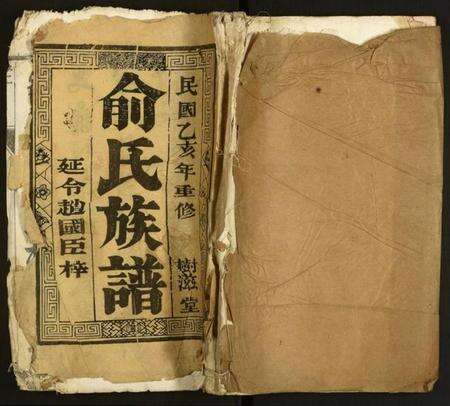 民國乙亥年重修 樹滋堂
俞氏族譜
延令趙國臣梓